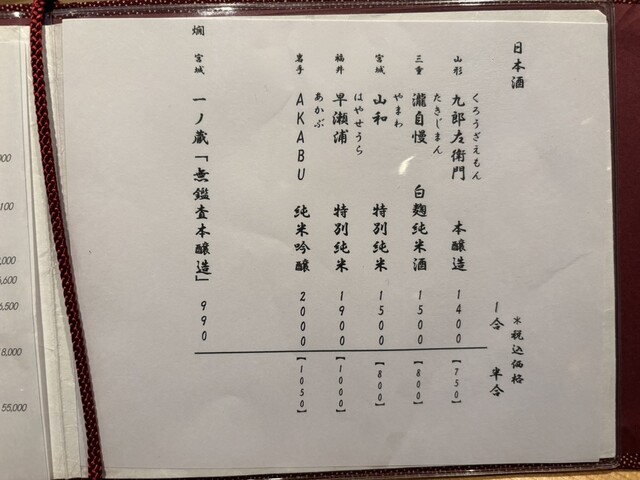 日本酒
*税込価格
1合 半合
くろうざえもん
山形 九郎左衛門 本醸造 1400 【750】
たきじまん
三重 瀧自慢 白麹純米酒 1500 【800】
やまわ
宮城 山和 特別純米 1500 【800】
はやせうら
福井 早瀬浦 特別純米 1900 【1000】
あかぶ
岩手 AKABU 純米吟醸 2000 【1050】
燗 宮城 一ノ蔵「無鑑査本醸造」 990
000
100
,000
,600
6,500
18,000
55,000